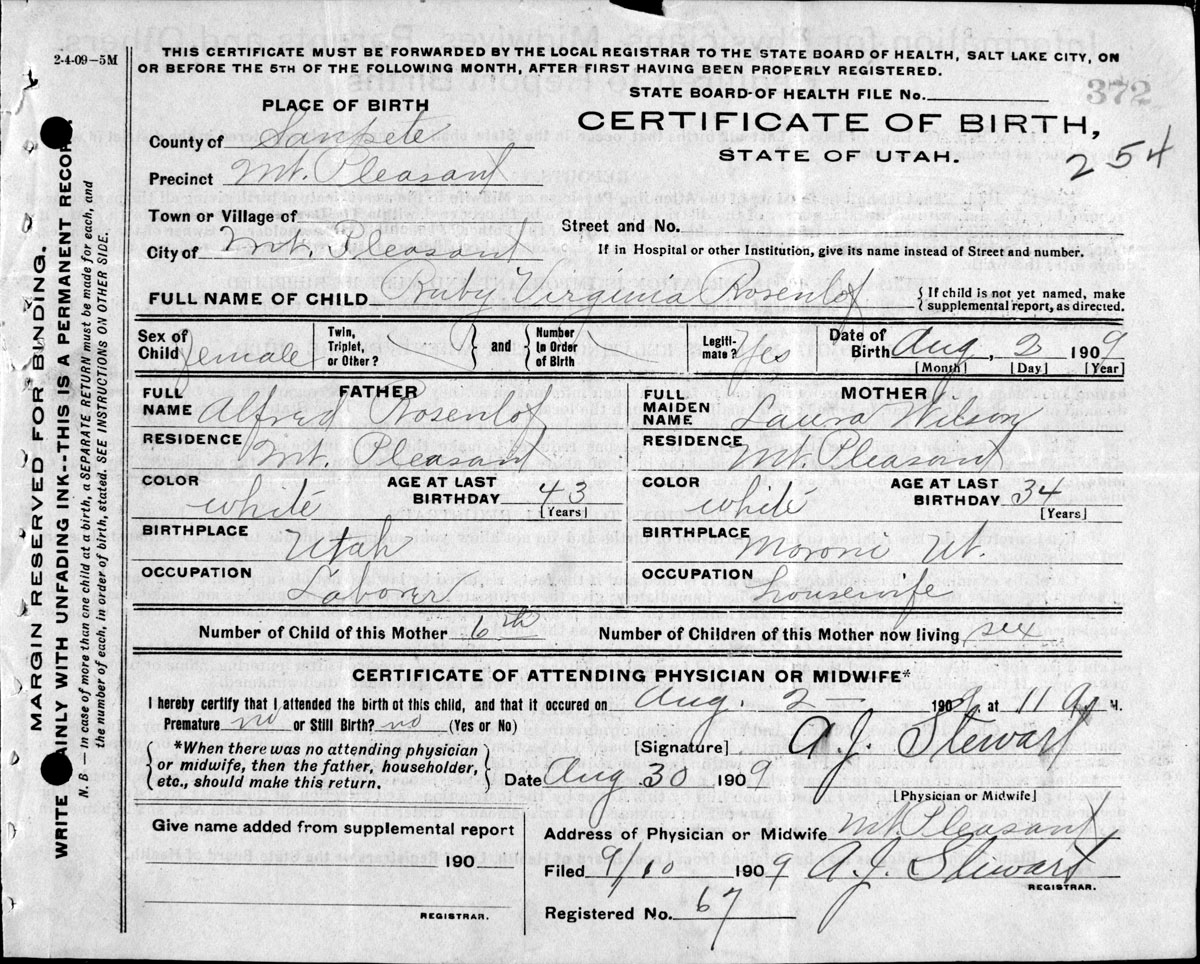 2-4-09-5M
THIS CERTIFICATE MUST BE FORWARDED BY THE LOCAL REGISTRAR TO THE STATE BOARD OF HEALTH, SALT LAKE CITY, ON
OR BEFORE THE 5TH OF THE FOLLOWING MONTH, AFTER FIRST HAVING BEEN PROPERLY REGISTERED.
STATE BOARD OF HEALTH FILE No.
372
PLACE OF BIRTH
CERTIFICATE OF BIRTH,
STATE OF UTAH.
254
County of Sanpete
Precinct Mt. Pleasant
Town or Village of
Street and No.
City of Mt. Pleasant
If in Hospital or other Institution, give its name instead of Street and number.
FULL NAME OF CHILD Ruby Virginia Rosenlof { If child is not yet named, make supplemental report, as directed.
Sex of Child female Twin, Triplet, or Other? } and { Number in Order of Birth Legiti-mate? Yes Date of Birth Aug, 2 1909
[Month] [Day] [Year]
FATHER
FULL NAME Alfred Rosenlof
RESIDENCE Mt. Pleasant
COLOR white AGE AT LAST BIRTHDAY 43 [Years]
BIRTHPLACE Utah
OCCUPATION Laborer
MOTHER
FULL MAIDEN NAME Laura Wilson
RESIDENCE Mt. Pleasant
COLOR white AGE AT LAST BIRTHDAY 34 [Years]
BIRTHPLACE Moroni Ut.
OCCUPATION housewife
Number of Child of this Mother 6th Number of Children of this Mother now living six
CERTIFICATE OF ATTENDING PHYSICIAN OR MIDWIFE*
I hereby certify that I attended the birth of this child, and that it occured on Aug. 2 — 1909, at 11 a. M.
Premature no or Still Birth? no (Yes or No)
{ *When there was no attending physician
or midwife, then the father, householder,
etc., should make this return. }
[Signature] A. J. Stewart
Date Aug. 30 1909
[Physician or Midwife]
Give name added from supplemental report
190
REGISTRAR.
Address of Physician or Midwife Mt. Pleasant
Filed 9/10 1909 A. J. Stewart
REGISTRAR.
Registered No. 67
MARGIN RESERVED FOR BINDING.
WRITE AINLY WITH UNFADING INK--THIS IS A PERMANENT RECOR
N. B.—In case of more than one child at a birth, a SEPARATE RETURN must be made for each, and
the number of each, in order of birth, stated. SEE INSTRUCTIONS ON OTHER SIDE.